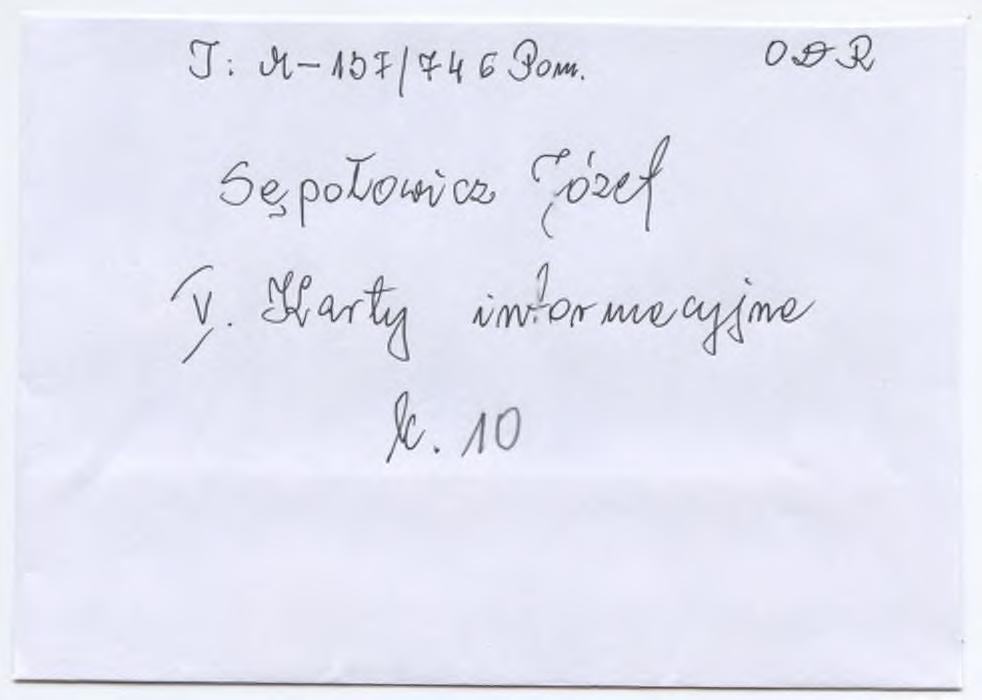 T: M-137/746 Pom. ODR
Sępołowicz Józef
V. Karty informacyjne
k. 10